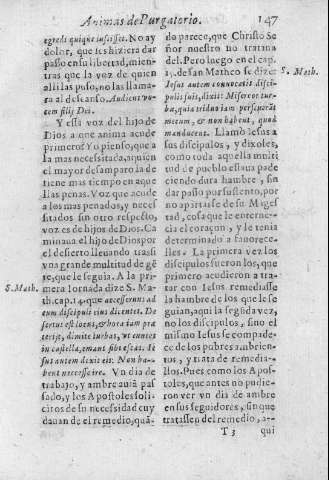 Animas de Purgatorio. 147
egredi quique iussisset. No ay
dolor, que les hiziera dar
passo en su libertad, mien
tras que la voz de quien
allilas puso, no las llama-
ra al descanso. Audient vo-
cem filij Dei.
Y esta voz del hijo de
Dios a que anima acude
primero? Yo pienso, que a
la mas necessitada, aquien
el mayor desamparo la tie
ne mas tiempo en aque
llas penas. Voz que acude
a los mas penados, y nece
sitados sin otro respesto,
voz es de hijos de Dios. Ca
minaua el hijo de Dios por
el desierto lleuando trassi
vna grande multitud de gē
te, que le seguia. A la pri
mera Iornada dize S. Ma
S. Math.
th. cap. 14. que accesserunt ad
eum discipuli eius dicentes. De
sertus est locus, & hora iam pra
terijt, dimitte turbas, vt euntes
in castella, emant sibi escas. Ie
sus autem dixit eis: Non ha-
bent necesse ire. Vn dia de
trabajo, y ambre auia pas
sado, y los Apostoles soli
citos de su necessidad cuy
dauan de su remedio, quā-
do parece, que Christo Se
ñor nuestro no trataua
del. Pero luego en el cap.
15. de san Matheo se dize:
S. Math.
Iesus autem conuocatis disci-
pulis suis, dixit: Misereor tur-
ba, quia triduo iam perseuerāt
mecum, & non habent, quod
manducent. Llamò Iesus a
sus discipulos, y dixoles,
como toda aquella multi
tud de pueblo estaua pade
ciendo dura hambre, sin
dar passo por sustento, por
no apartarse de su Mages
tad, cosa que le enterne-
cia el coraçon, y le tenia
determinado a fauorece-
lles. La primera vez los
discipulos fueron los, que
primero acudieron a tra-
tar con Iesus remediasse
la hambre de los que le se
guian, aqui la segūda vez,
no los discipulos, sino el
mismo Iesus se compade-
ce de los pobres ambrien-
tos, y trata de remedia-
llos. Pues como los Apos-
toles, que antes no pudie-
ron ver vn dia de ambre
en sus seguidores, sin que
tratassen del remedio, a-
T 3 qui